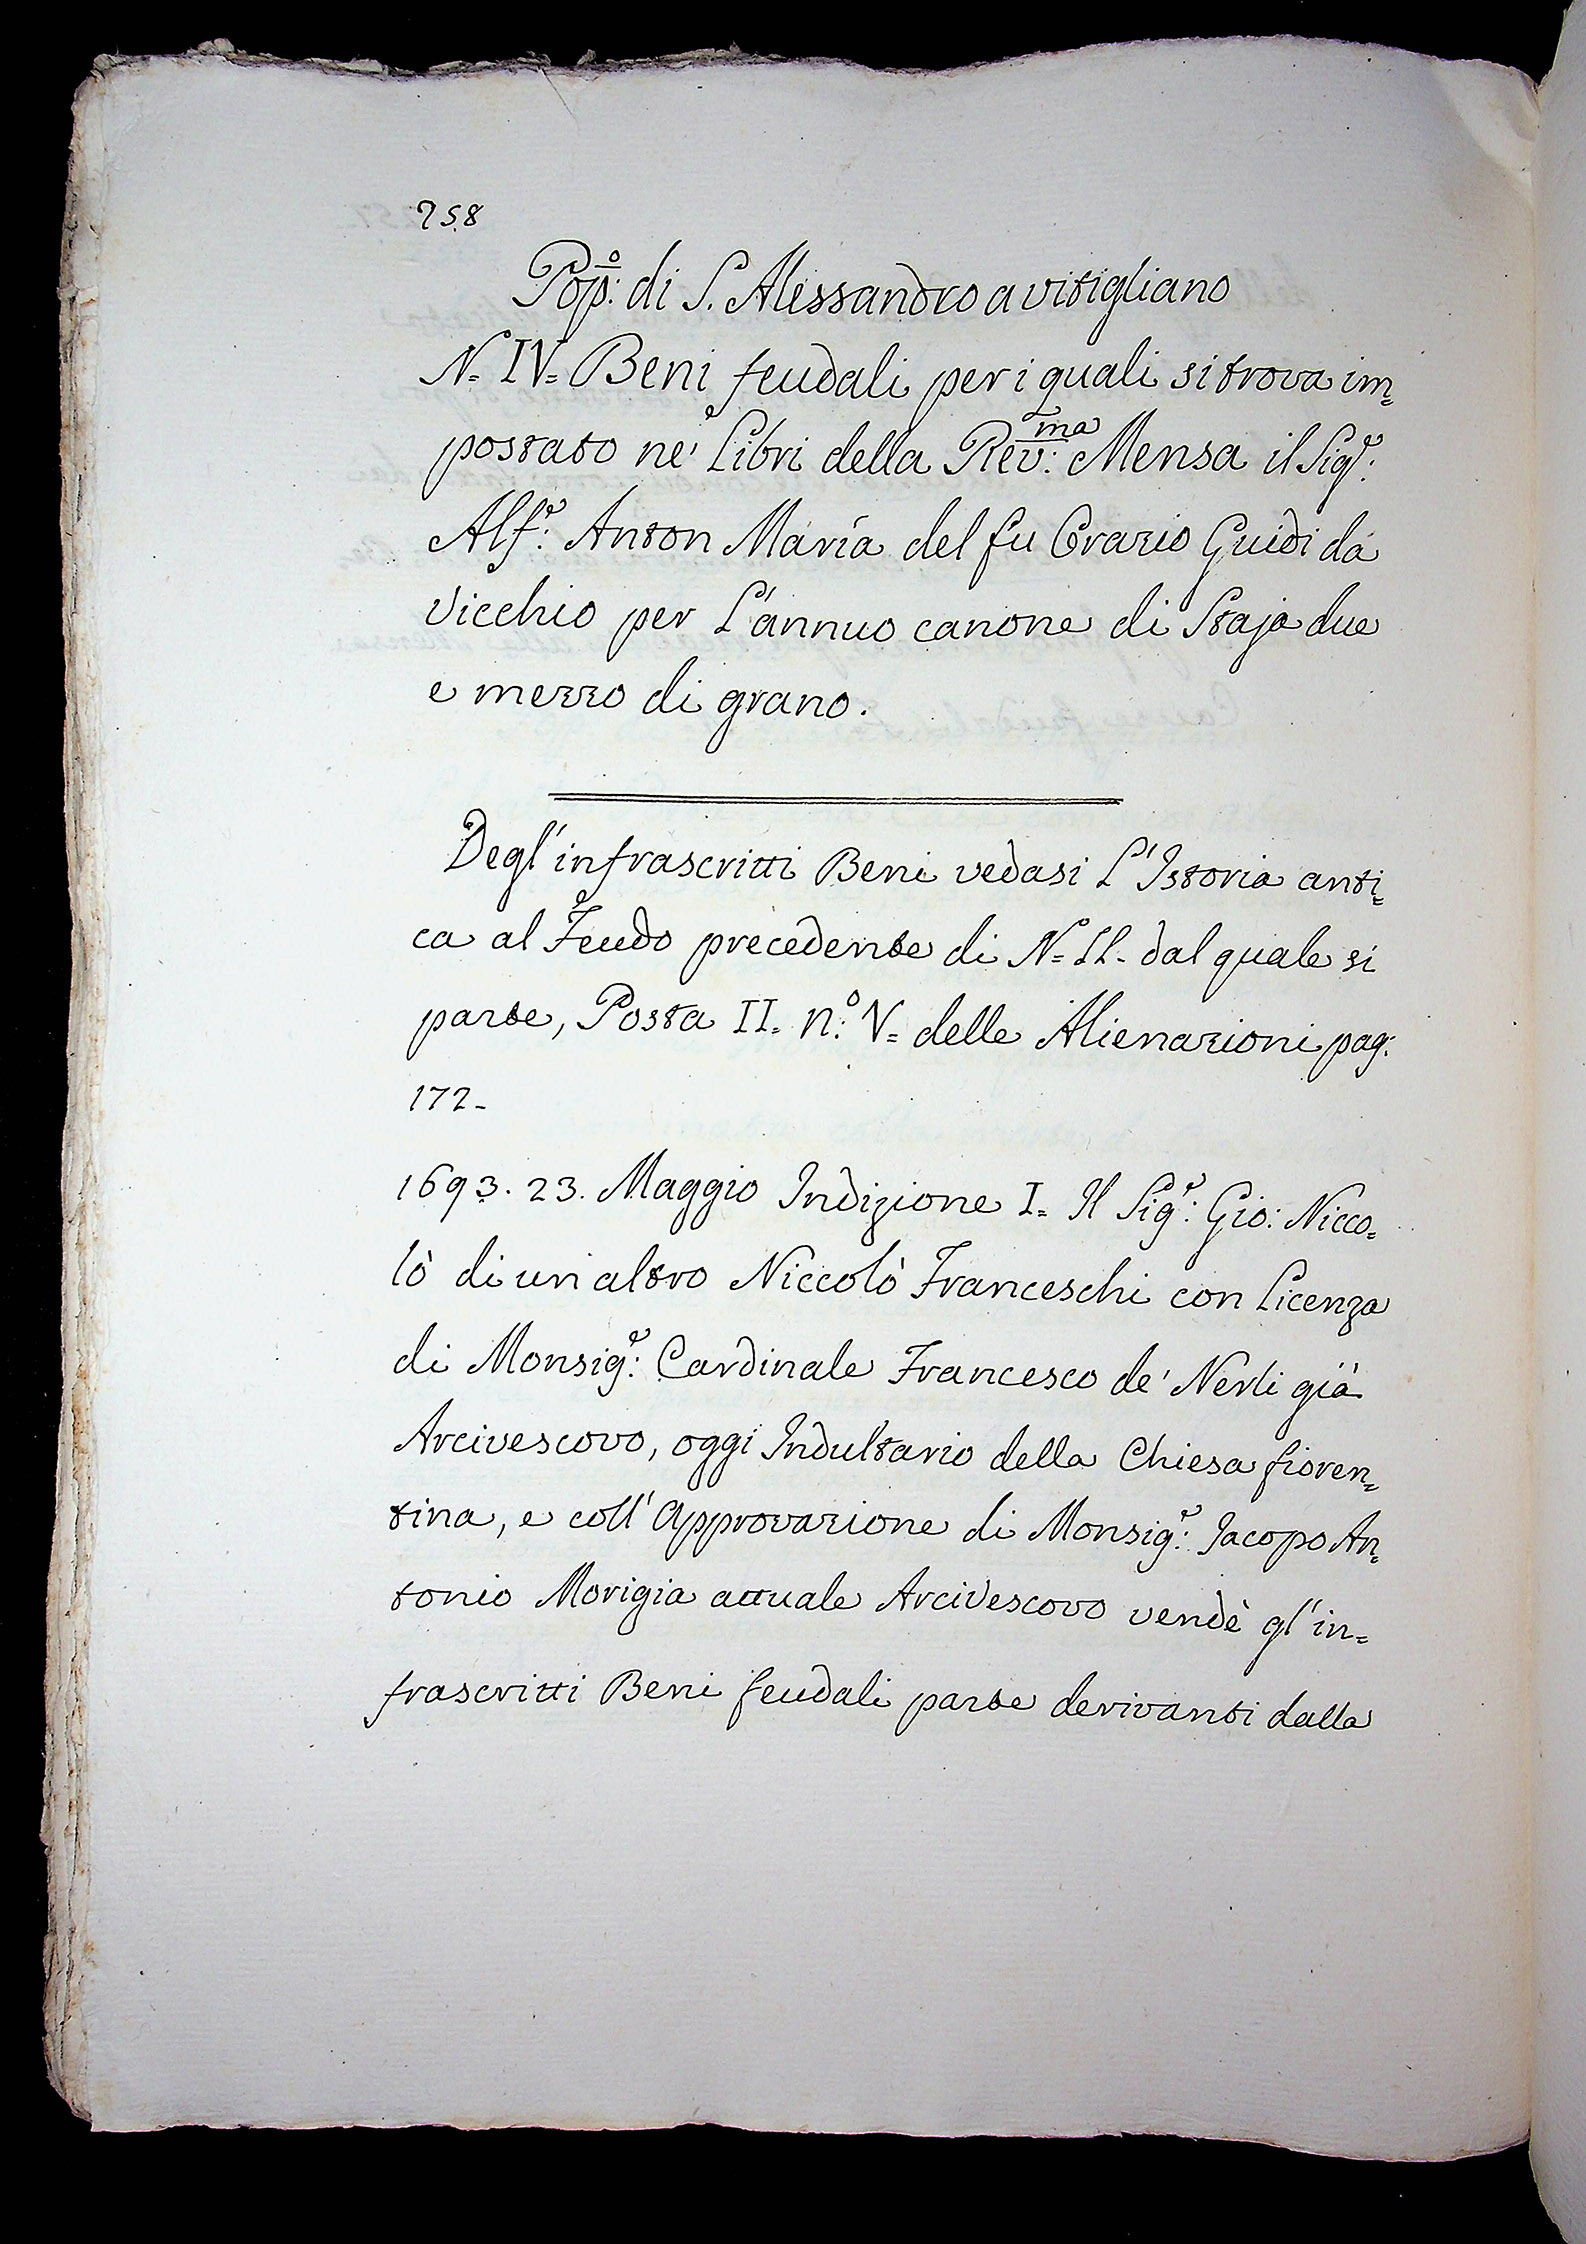 258
Pop:º di S. Alessandro a vitigliano
N= IV= Beni feudali per i quali si trova im=
postato ne' Libri della Rev:ma Mensa il Sigr:
Alfr: Anton Maria del fu Orazio Guidi da
Vicchio per L'annuo canone di Staja due
e mezzo di grano.
Degl'infrascritti Beni vedasi L'Istoria anti=
ca al Feudo precedente di N= II- dal quale si
parte, Posta II= n:º V= delle Alienazioni pag:
172-
1693. 23. Maggio Indizione I= Il Sigr: Gio: Nicco=
lò di un altro Niccolò Franceschi con Licenza
di Monsigr: Cardinale Francesco de' Nerli già
Arcivescovo, oggi Indultario della Chiesa fioren=
tina, e coll'Approvazione di Monsigr: Jacopo An=
tonio Morigia attuale Arcivescovo vendè gl'in=
frascritti Beni feudali parte derivanti dalla